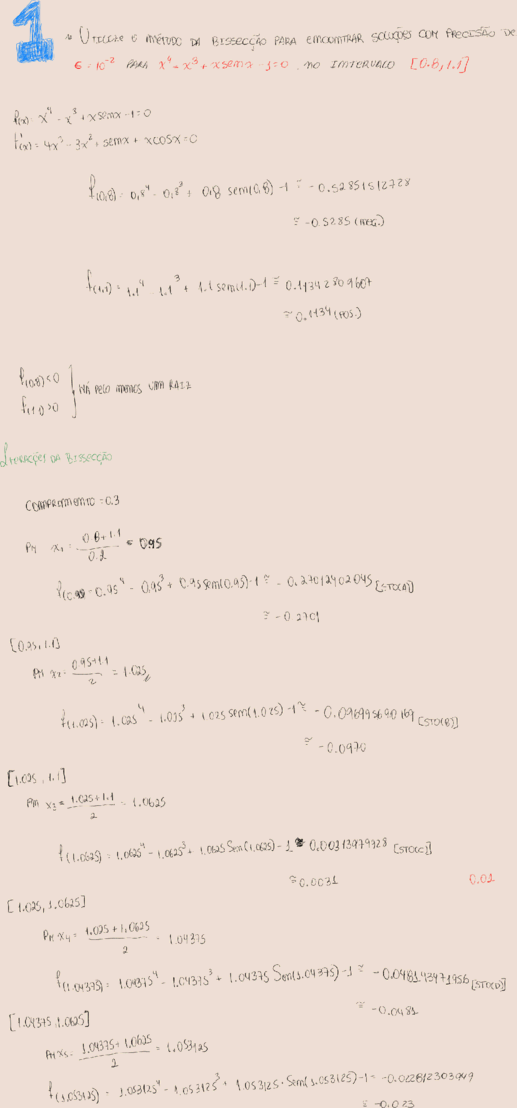 1 • UTILIZE O MÉTODO DA BISSECÇÃO PARA ENCONTRAR SOLUÇÕES COM PRECISÃO DE
ε = 10⁻² PARA x⁴ - x³ + x senx - 1 = 0 NO INTERVALO [0.8, 1.1]
f(x) = x⁴ - x³ + x senx - 1 = 0
f'(x) = 4x³ - 3x² + senx + x cosx = 0
f(0,8) = 0,8⁴ - 0,8³ + 0,8 sen(0,8) - 1 ≅ -0.52851512728
≅ -0.5285 (NEG.)
f(1,1) = 1.1⁴ - 1.1³ + 1.1 sen(1.1) - 1 ≅ 0.11342809607
≅ 0.1134 (POS.)
f(0.8) < 0
f(1.1) > 0
HÁ PELO MENOS UMA RAIZ
ITERAÇÕES DA BISSECÇÃO
COMPRIMENTO = 0.3
PM x₁ = 0.8+1.1 / 0.2 = 0.95
f(0.95) = 0.95⁴ - 0.95³ + 0.95 sen(0.95) - 1 ≅ -0.27012402045 [→STO(A)]
≅ -0.2701
[0.95, 1.1]
PM x₂ = 0.95+1.1 / 2 = 1.025
f(1.025) = 1.025⁴ - 1.025³ + 1.025 sen(1.025) - 1 ≅ -0.096995690169 [STO(B)]
≅ -0.0970
[1.025, 1.1]
PM x₃ = 1.025+1.1 / 2 = 1.0625
f(1.0625) = 1.0625⁴ - 1.0625³ + 1.0625 Sen(1.0625) - 1 ≅ 0.00313979328 [STO(C)]
≅ 0.0031
0.01
[1.025, 1.0625]
PM x₄ = 1.025 + 1.0625 / 2 = 1.04375
f(1.04375) = 1.04375⁴ - 1.04375³ + 1.04375 Sen(1.04375) - 1 ≅ -0.048143471956 [STO(D)]
≅ -0.0481
[1.04375, 1.0625]
PM x₅ = 1.04375+1.0625 / 2 = 1.053125
f(1.053125) = 1.053125⁴ - 1.053125³ + 1.053125 · Sen(1.053125) - 1 = -0.022812303949
≅ -0.023